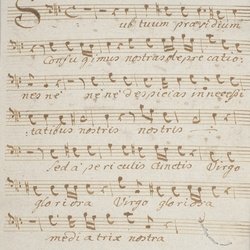 Sub tuum præsidium
Confugimus nostras deprecatio,
nes ne ne ne despicias in necessi
tatibus nostris nostris
sed a periculis cunctis Virgo
gloriosa Virgo gloriosa
mediatrix nostra